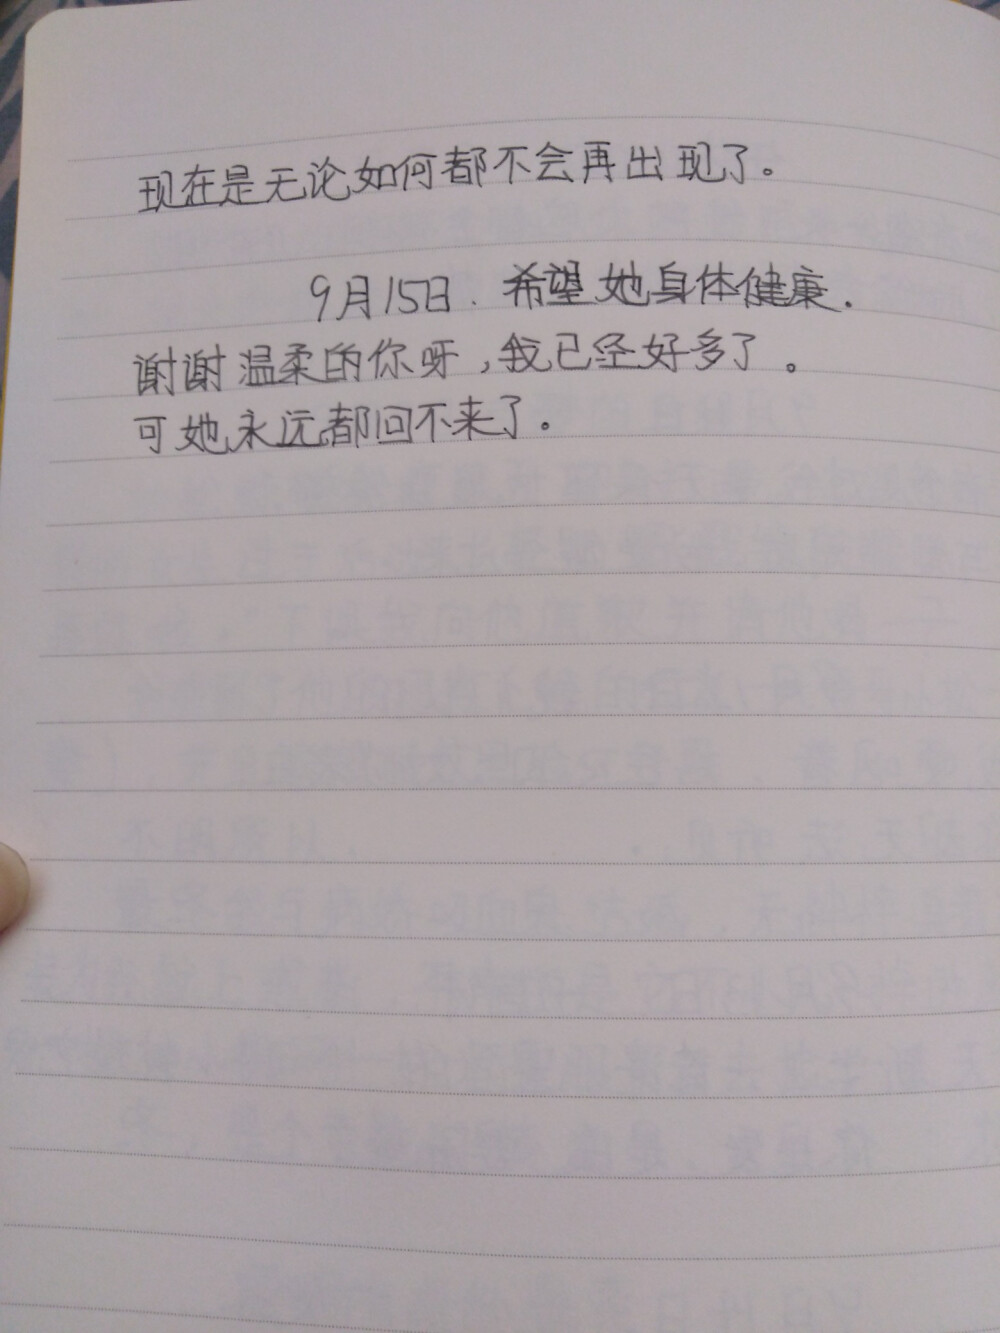 现在是无论如何都不会再出现了。
9月15日. 希望她身体健康.
谢谢温柔的你呀，我已经好多了。
可她永远都回不来了。